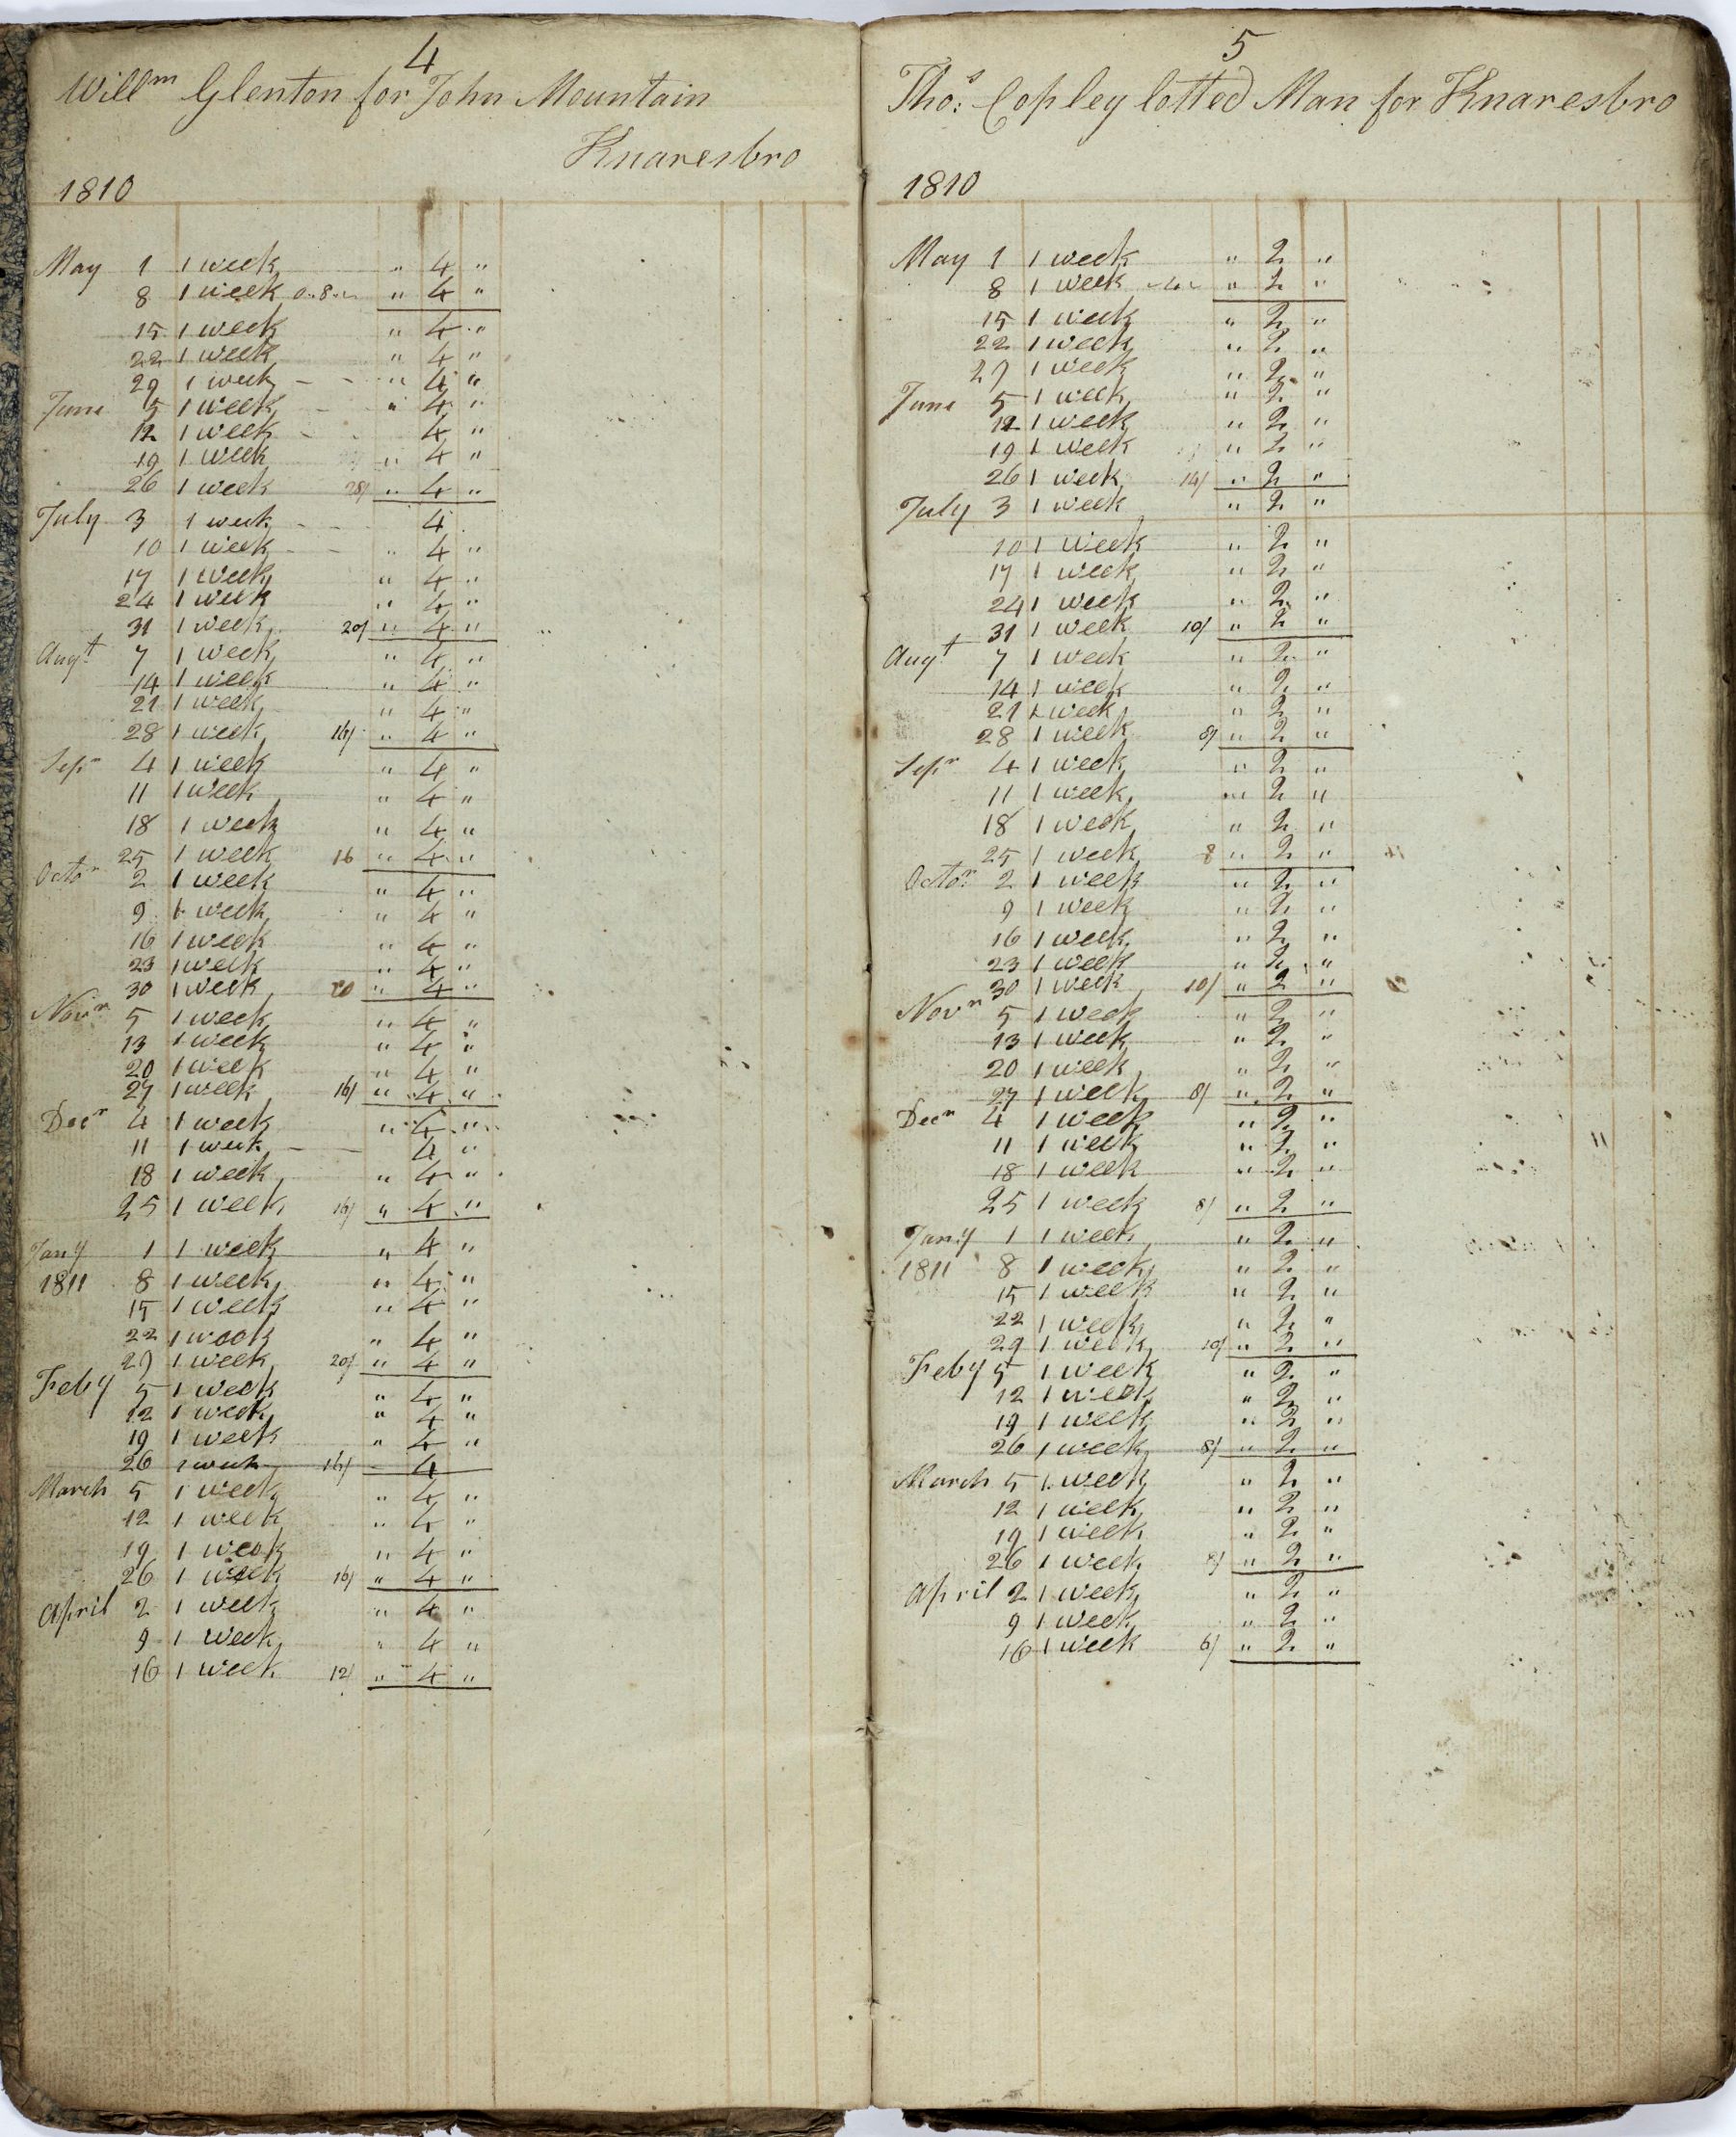 4
Willm Glenton for John Mountain
Knaresbro
1810
May 1 1 week " 4 "
8 1 week 0..8.. " 4 "
15 1 week " 4 "
22 1 week " 4 "
29 1 week - - " 4 "
June 5 1 week - " 4 "
12 1 week - 4 "
19 1 week " 4 "
26 1 week 28/ " 4 "
July 3 1 week - - 4
10 1 week - - " 4 "
17 1 week " 4 "
24 1 week " 4 "
31 1 week 20/ " 4 "
Augt 7 1 week " 4 "
14 1 week " 4 "
21 1 week " 4 "
28 1 week 16/ " 4 "
Sepr 4 1 week " 4 "
11 1 week " 4 "
18 1 week " 4 "
25 1 week 16 " 4 "
Octor 2 1 week " 4 "
9 1 week " 4 "
16 1 week " 4 "
23 1 week " 4 "
30 1 week 20 " 4 "
Novr 5 1 week " 4 "
13 1 week " 4 "
20 1 week " 4 "
27 1 week 16/ " 4 "
Decr 4 1 week " 4 "
11 1 week - - 4 "
18 1 week " 4 "
25 1 week 16/ " 4 "
Jany 1 1 week " 4 "
1811 8 1 week " 4 "
15 1 week " 4 "
22 1 week " 4 "
29 1 week 20/ " 4 "
Feby 5 1 week " 4 "
12 1 week " 4 "
19 1 week " 4 "
26 1 week 16/ - 4
March 5 1 week " 4 "
12 1 week " 4 "
19 1 week " 4 "
26 1 week 16/ " 4 "
April 2 1 week " 4 "
9 1 week " 4 "
16 1 week 12/ " 4 "
5
Thos: Copley lotted Man for Knaresbro
1810
May 1 1 week " 2 "
8 1 week " 2 "
15 1 week " 2 "
22 1 week " 2 "
29 1 week " 2 "
June 5 1 week " 2 "
12 1 week " 2 "
19 1 week " 2 "
26 1 week 14/ " 2 "
July 3 1 week " 2 "
10 1 week " 2 "
17 1 week " 2 "
24 1 week " 2 "
31 1 week 10/ " 2 "
Augt 7 1 week " 2 "
14 1 week " 2 "
21 1 week " 2 "
28 1 week 8/ " 2 "
Sepr 4 1 week " 2 "
11 1 week " 2 "
18 1 week " 2 "
25 1 week 8 " 2 "
Octor: 2 1 week " 2 "
9 1 week " 2 "
16 1 week " 2 "
23 1 week " 2 "
30 1 week 10/ " 2 "
Novr 5 1 week " 2 "
13 1 week " 2 "
20 1 week " 2 "
27 1 week 8/ " 2 "
Decr 4 1 week " 2 "
11 1 week " 2 "
18 1 week " 2 "
25 1 week 8/ " 2 "
Jany 1 1 week " 2 "
1811 8 1 week " 2 "
15 1 week " 2 "
22 1 week " 2 "
29 1 week 10/ " 2 "
Feby 5 1 week " 2 "
12 1 week " 2 "
19 1 week " 2 "
26 1 week 8/ " 2 "
March 5 1 week " 2 "
12 1 week " 2 "
19 1 week " 2 "
26 1 week 8/ " 2 "
April 2 1 week " 2 "
9 1 week " 2 "
16 1 week 6/ " 2 "